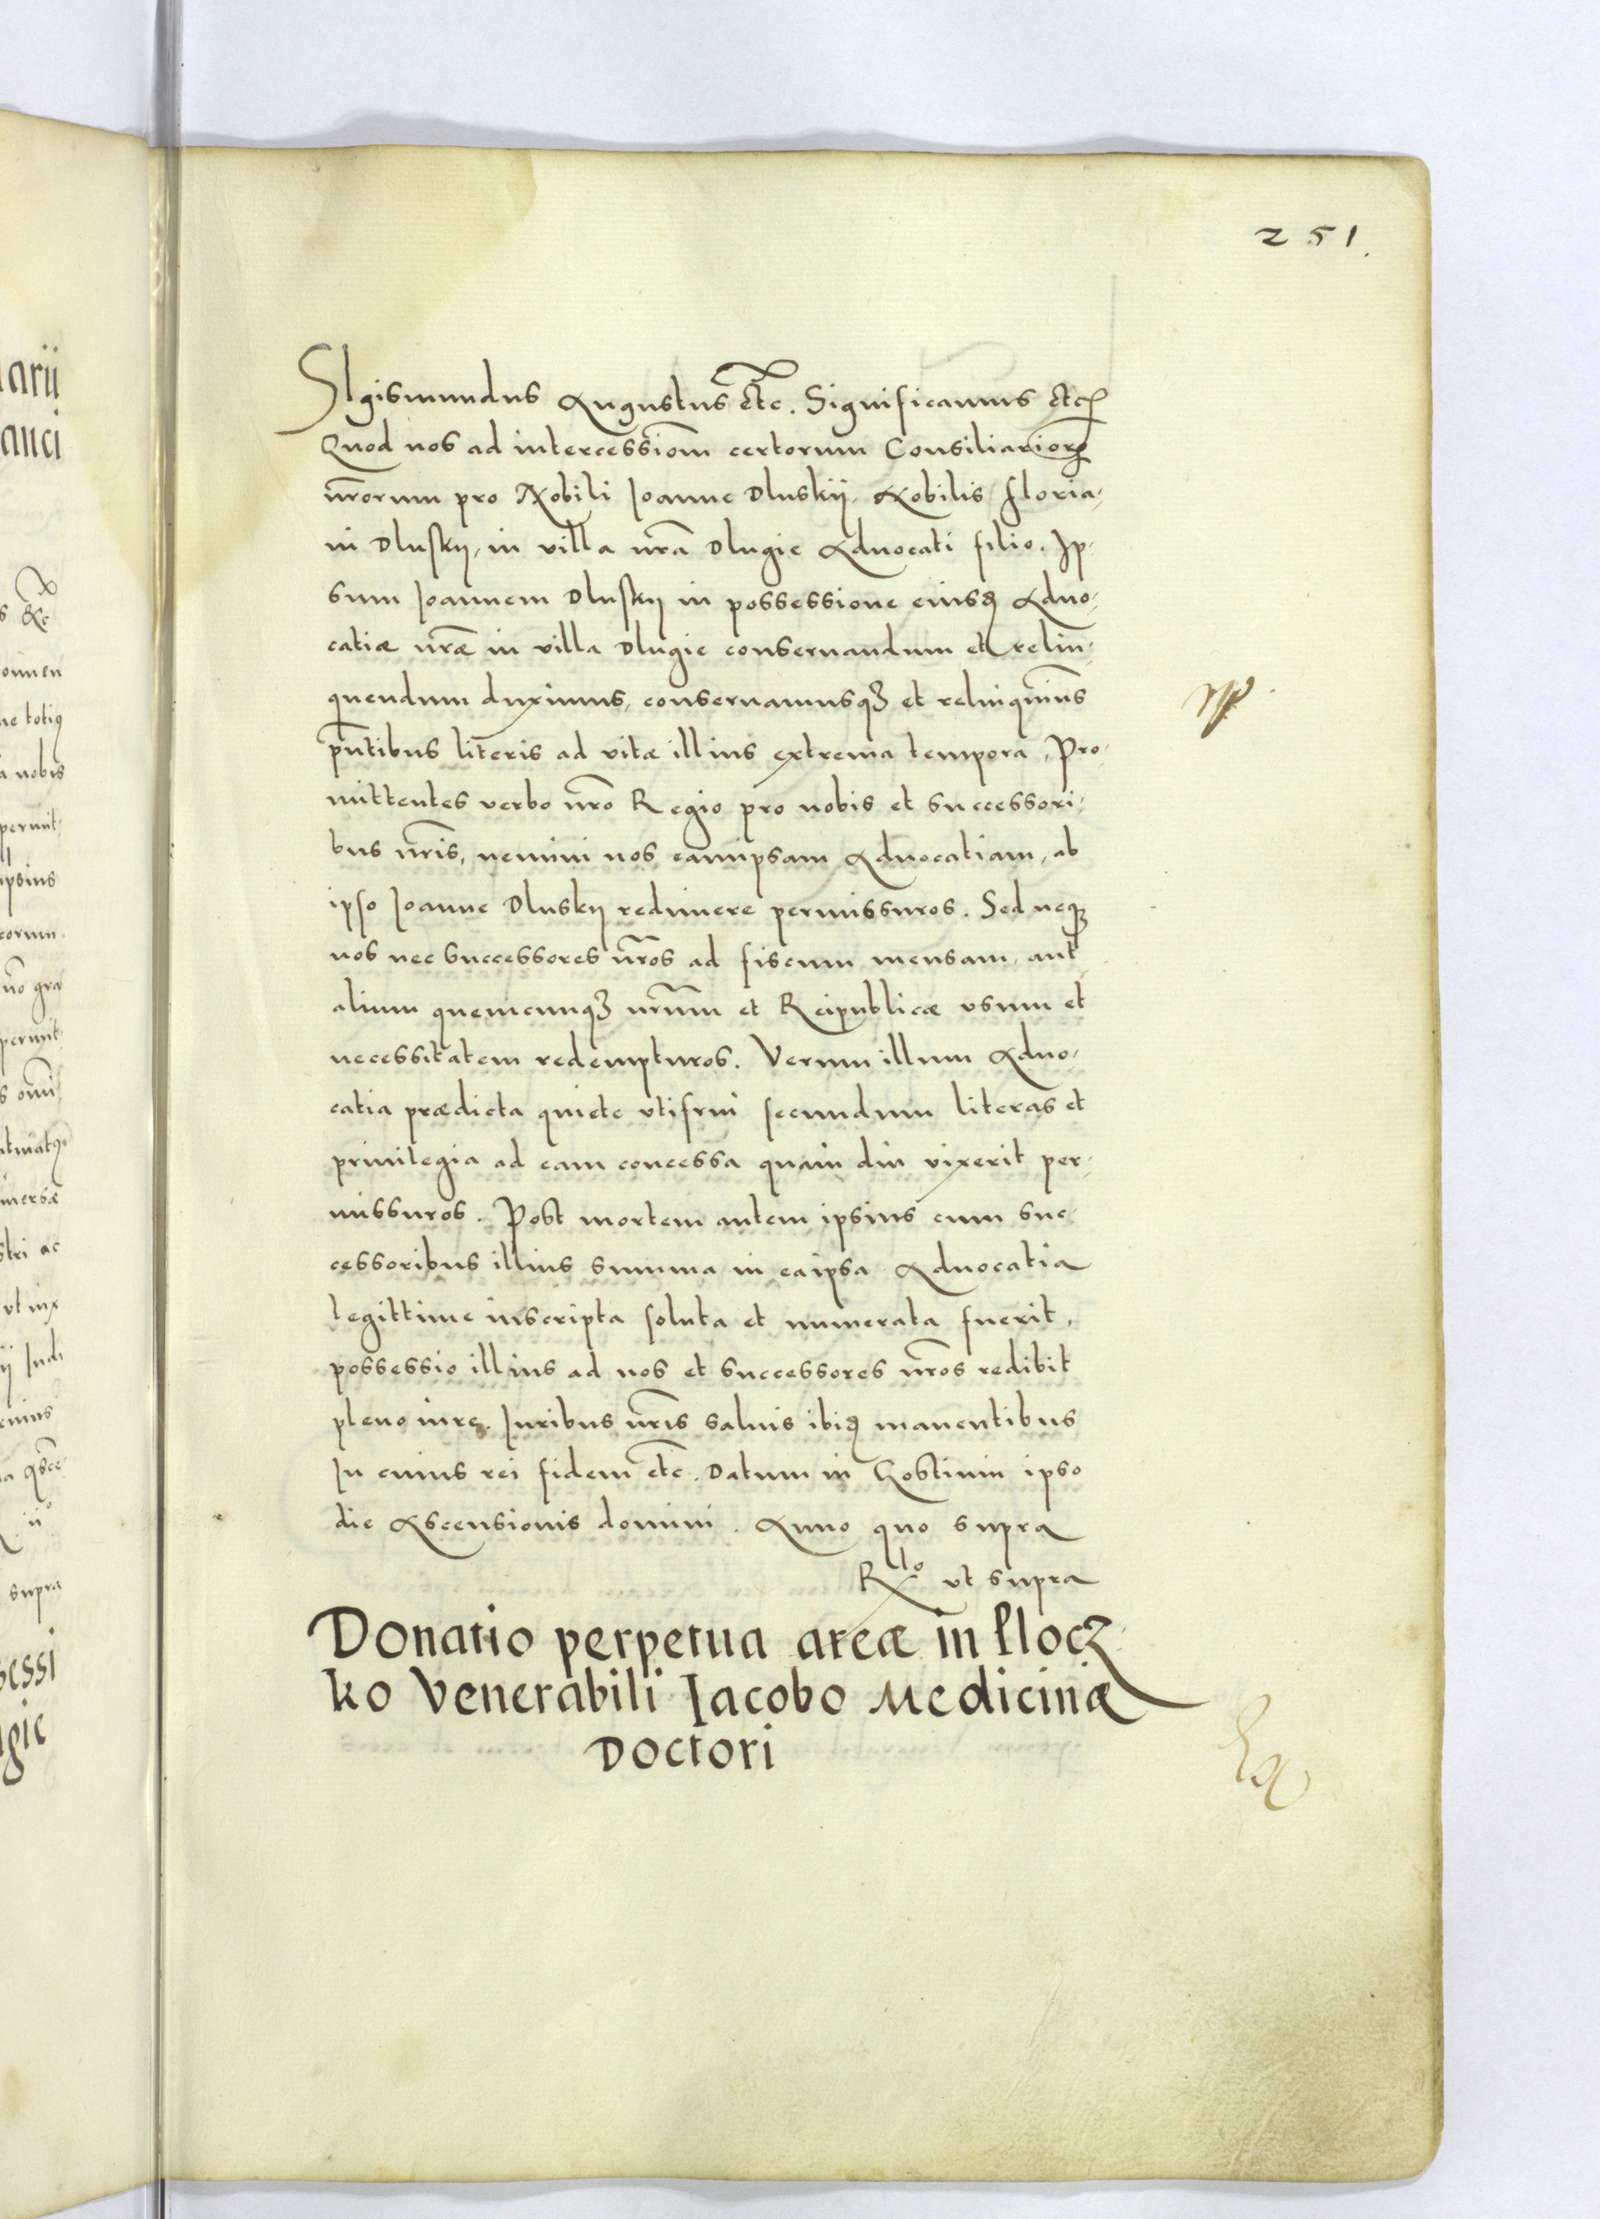 251.
SIgismundus Augustus etc. Significamus etc
Quod nos ad intercessiom certorum Consiliarior
nrorum pro Nobili Ioanne Dluskij, Nobilis Floria,
ni Dlusky, in villa nra Dlugie Aduocati filio. Ip,
sum Ioannem Dlusky in possessione eiusd Aduo,
catiæ nræ in villa Dlugie conseruandum et relin,
quendum duximus, conseruamusqz et relinquims
pntibus literis ad vitæ illius extrema tempora, Pro,
mittentes verbo nro Regio pro nobis et successori,
bus nris, nemini nos eamipsam Aduocatiam, ab
ipso Ioanne Dlusky redimere permissuros. Sed neqz
nos nec successores nros ad fiscum mensam, aut
alium quemcunqz nrum et Reipublicæ vsum et
necessitatem redempturos. Verum illum Aduo,
catia prædicta quiete vtifrui secundum literas et
priuilegia ad eam concessa quam diu vixerit per,
missuros. Post mortem autem ipsius cum suc,
cessoribus illius summa in eaipsa Aduocatia
legittime inscripta soluta et numerata fuerit,
possessio illius ad nos et successores nros redibit
pleno iure. Iuribus nris saluis ibid manentibus
In cuius rei fidem etc. Datum in Gostinin ipso
die Ascensionis domini. Anno quo supra
Rlo vt supra
Donatio perpetua areæ in Plocz,
ko Venerabili Iacobo Medicinæ
Doctori